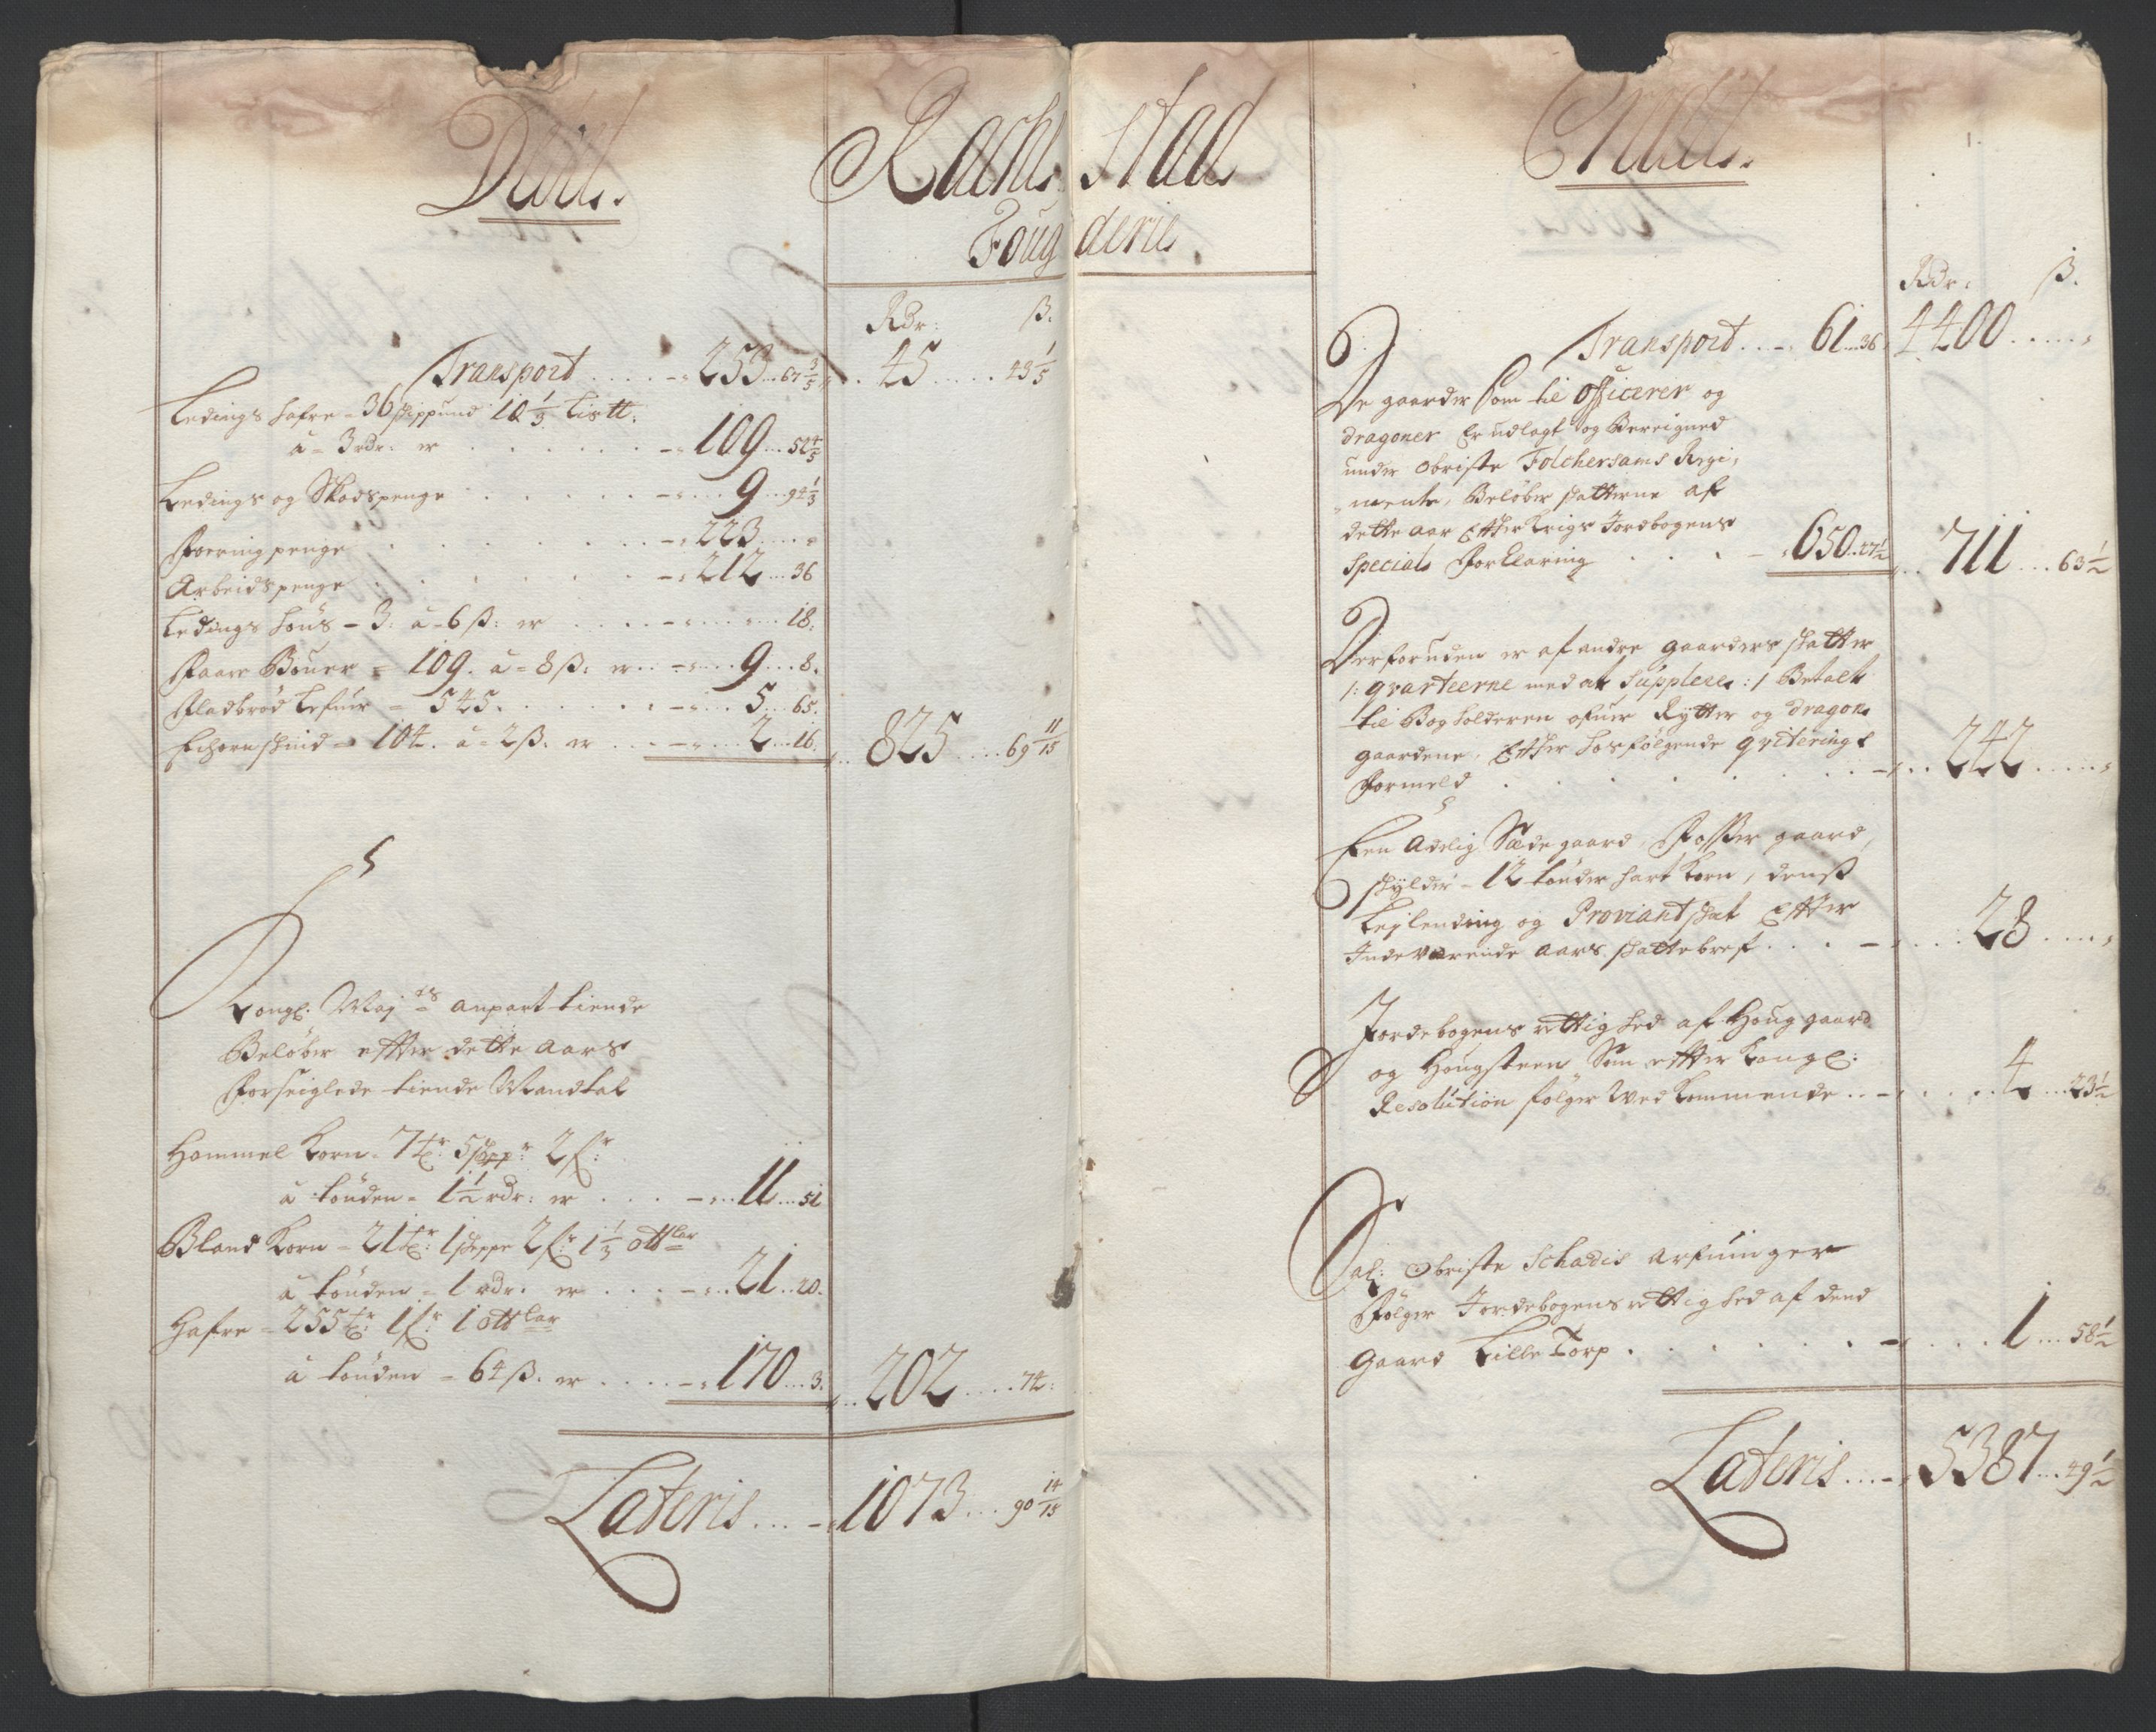 Debit.
Rachestad
Fougderie
Rdr: ß.
Transport .... 253..67 3/5 .. 45 .... 43 1/5
Ledings hafre = 36 skippund 10 1/3 Listt:
a = 3 rdr: er ...... 109...52 4/5
Ledings og Skadspenge ...... 9...94 1/3
Foering penge ...... 223....
Arbeidspenge ...... 212...36
Ledings høns - 3: a - 6 ß: er .... 18:
Faare Bouer = 109. a = 8 ß: er .. 9...8.
Fladbrød Lefuer = 545. ..... 5...65.
Echornskind = 104. a = 2 ß. er ... 2...16. .. 825 .... 69 11/15
Kongl: Maj ts anpart tiende
Beløber efter dette aars
Forseiglede tiende Mandtal
Hommel Korn = 7 tr: 5 skpr: 2 fr:
a tønden = 1 1/2 rdr: er .... 11...51
Bland Korn = 21 tr: 1 skeppe 2 fr: 1 1/3 ottlar
a tønden = 1 rdr. er ... 21..20.
Hafre = 255 tr: 1 fr: 1 ottlar
a tønden = 64 ß. er .... 170...3. .. 202 .... 74:
Lateris .... 1073... 90 14/15
Credit.
1.
Rdr: ß.
Transport .... 61...36 4400 .....
De gaarder som til officerer og
dragoner Er udlagt og Bereigned
under obriste Folchersams Regi,
mente, Beløber skatterne af
dette aar Efter Krigs Jordbogens
Specials Forklaring .... 650..27 1/2 .. 711 ... 63 1/2
Derforuden er af andre gaarders skatter
/: qvarteerne med at Supplere :/ Betalt
til Bogholderen ofuer Rytter og dragon
gaardene, Efter hosfølgende qviterings
Formeld ........ 242 .....
Een Adelig Sædegaard, Fosser gaard,
skylder - 12 tønder hart Korn, denß
Lejlending og Proviant skat Efter
Indeværende aars skattebref .... 28 .....
Jordebogens rettighed af Houg gaard
og Hougsteen Som efter Kongl:
Resolution følger Vedkommende .. 4 ...23 1/2
Sal: obriste Schadis arfuinger
Følger Jordebogens rettighed af dend
Gaard Lille Torp ....... 1 ... 58 1/2
Lateris .... 5387 ... 49 1/2